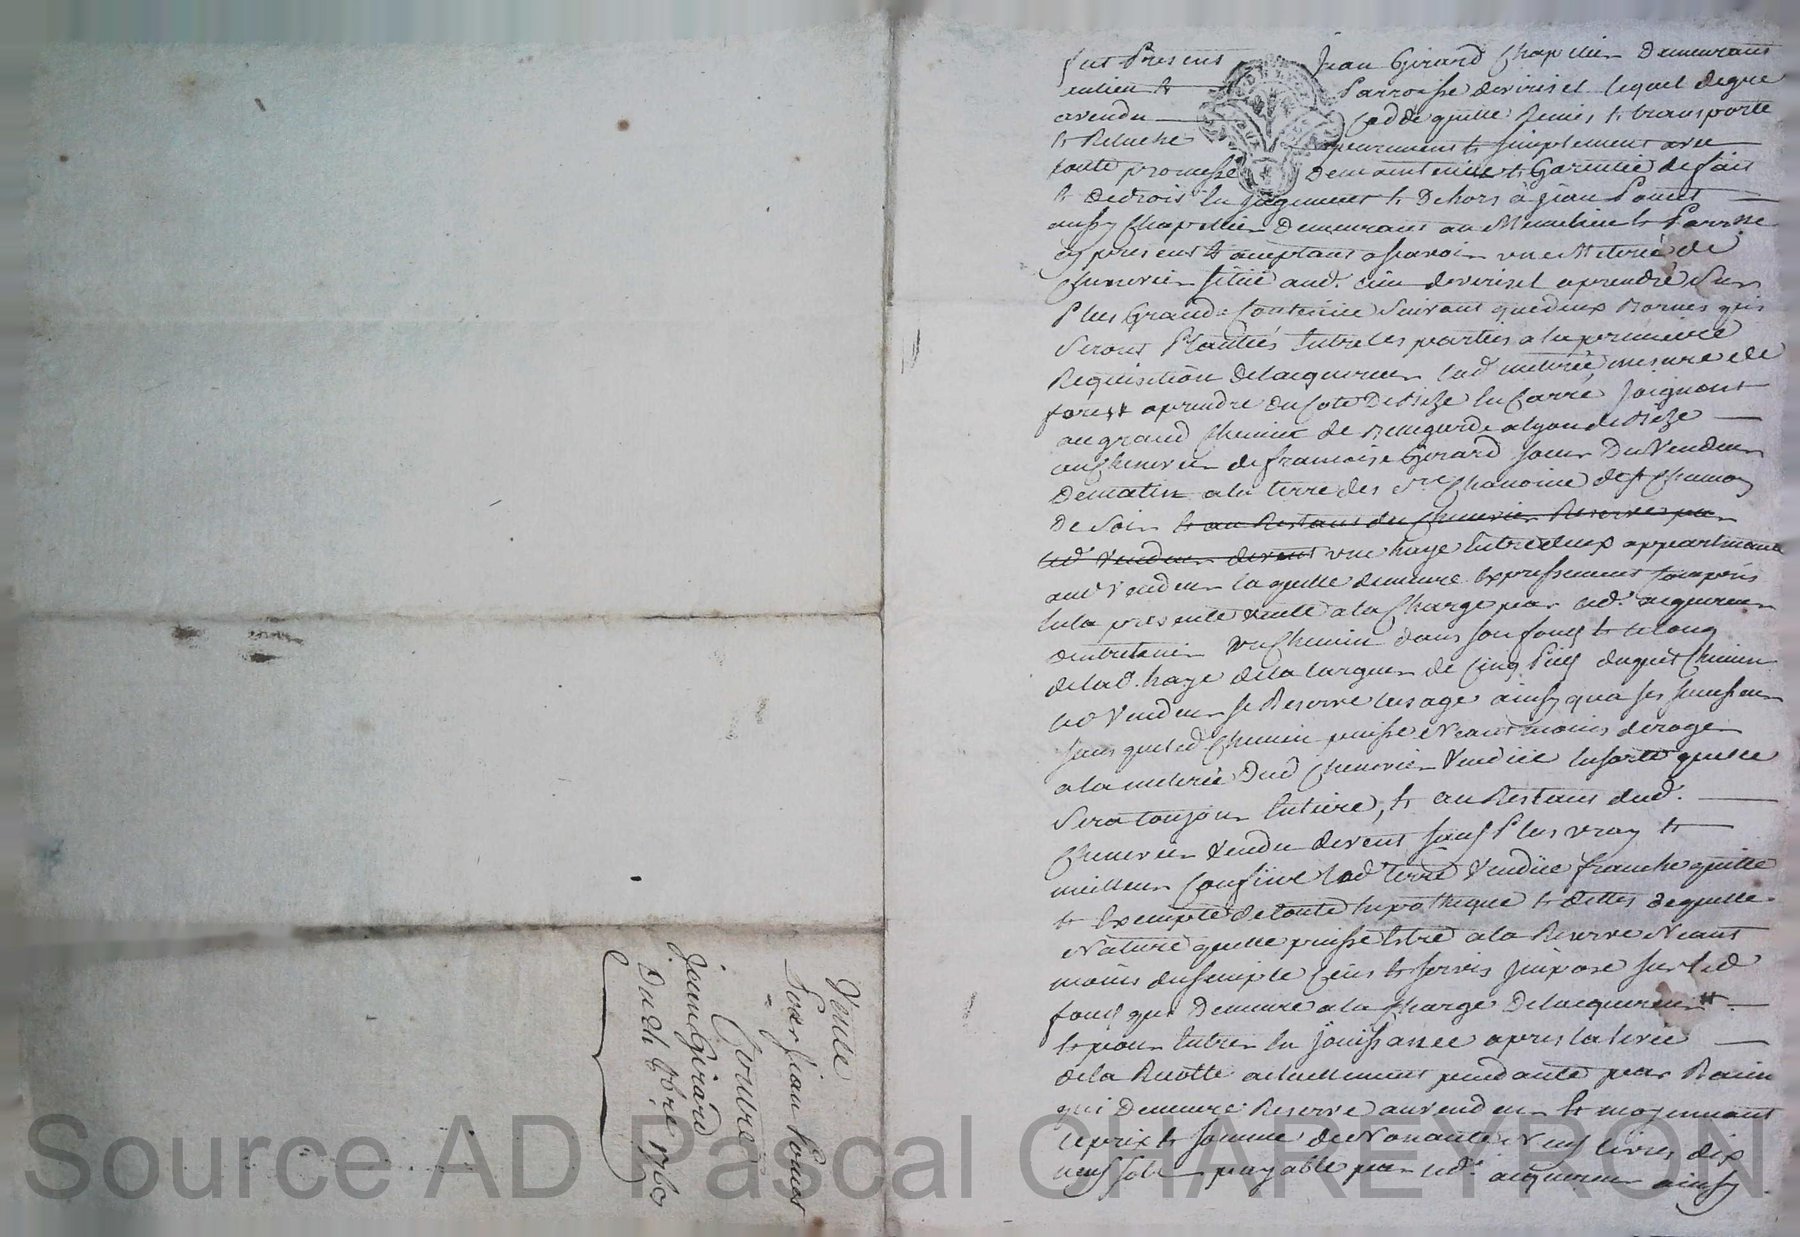 fut Présens Jean Girard Chapellier Demeurant
enlieu & Parroisse deviriset lequel degré
avendu ceddé quitté Remis & transporté
& Relaché purement & simplement avec
toute promesse De maintenue & Garentie defait
& dedroit en jugement & Dehors à jean Ponset
aussy Chapellier Demeurant au & Parroisse
cy présent & aceptant asçavoir une Meterée de
Chenevier situé aud. lieu deviriset aprendre Sur
Plus Grande Contenue Suivant que deux Bornes qui
Seront Plantées Entre les parties a la première
Requisition delacquereur lad meterée mesure de
forest aprendre du Coté De bize en Carré, Joignant
au grand Chemin de a lyon de bize
au chenevier de francoise Girard soeur Du Vendeur
De matin a la terre des Srs Chanoine de st Chamon
De Soir & au Restant du Chenevier Reservé par
led Vendeur devent une haye Entre deux appartenant
aud Vendeur laquelle demeure Expressement Compris
En la presente vente a la Charge par led. acquereur
dentretenir un Chemin dans son fond & le long
de lad. haye de la largeur de Cinq Pieds duquel Chemin
led Vendeur se Reserve lusage ainsy qua ses successeurs
sans que led Chemin puisse Neantmoins deroger
a la meterée Dud Chenevier Vendue Ensorte quelle
Sera toujour Entiere, & au Restant dud.
Chenevier Vendu devent sauf Plus vray &
meilleur Confins lad terre Vendue franche quitte
& Exempte de toute hipothique & dettes de quelle
Nature quelle puisse Estre a la Reserve Neant
moins du simple Cens & servis Jmposé sur led
fond qui Demeure a la Charge De lacquereur
& pour Entrer En Jouissance apres la levée
de la Recolte actuellement pendante par Racine
qui Demeure Reservé au vendeur & moyennant
le prix & somme de Nonante Neuf livres dix
neuf sols payable par led. acquereur ainsy
Vente
Pour jean Ponset
Contre
jean Girard
Du 21 9bre 1760
Source AD Pascal CHAREYRON